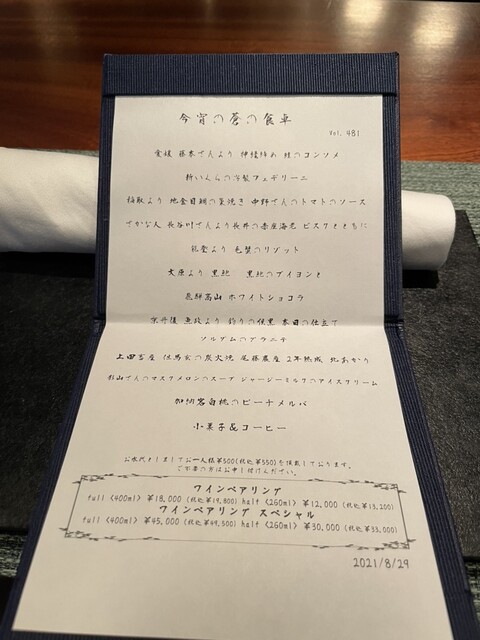 今宵の蒼の食卓
Vol. 481
愛媛 藤本さんより 神経〆め 鮭のコンソメ
新いくらの冷製フェデリーニ
稲取より 地金目鯛の藁焼き 中野さんのトマトのソース
さかな人 長谷川さんより長井の赤座海老 ビスクとともに
能登より 毛蟹のリゾット
大原より 黒鮑 黒鮑のブイヨンと
飛騨高山 ホワイトショコラ
京丹後 魚政より 釣りの 本日の仕立て
ソルダムのグラニテ
上田畜産 但馬玄の炭火焼 尾藤農産 2年熟成 北あかり
杉山さんのマスクメロンのスープ ジャージーミルクのアイスクリーム
加納岩白桃のピーチメルバ
小菓子&コーヒー
お水代としましてお一人様¥500(税込¥550)を頂戴しております。
ご不要の方はお申し付けください。
ワインペアリング
full (400ml) ¥18,000 (税込¥19,800) half (260ml) ¥12,000 (税込¥13,200)
ワインペアリング スペシャル
full (400ml) ¥45,000 (税込¥49,500) half (260ml) ¥30,000 (税込¥33,000)
2021/8/29